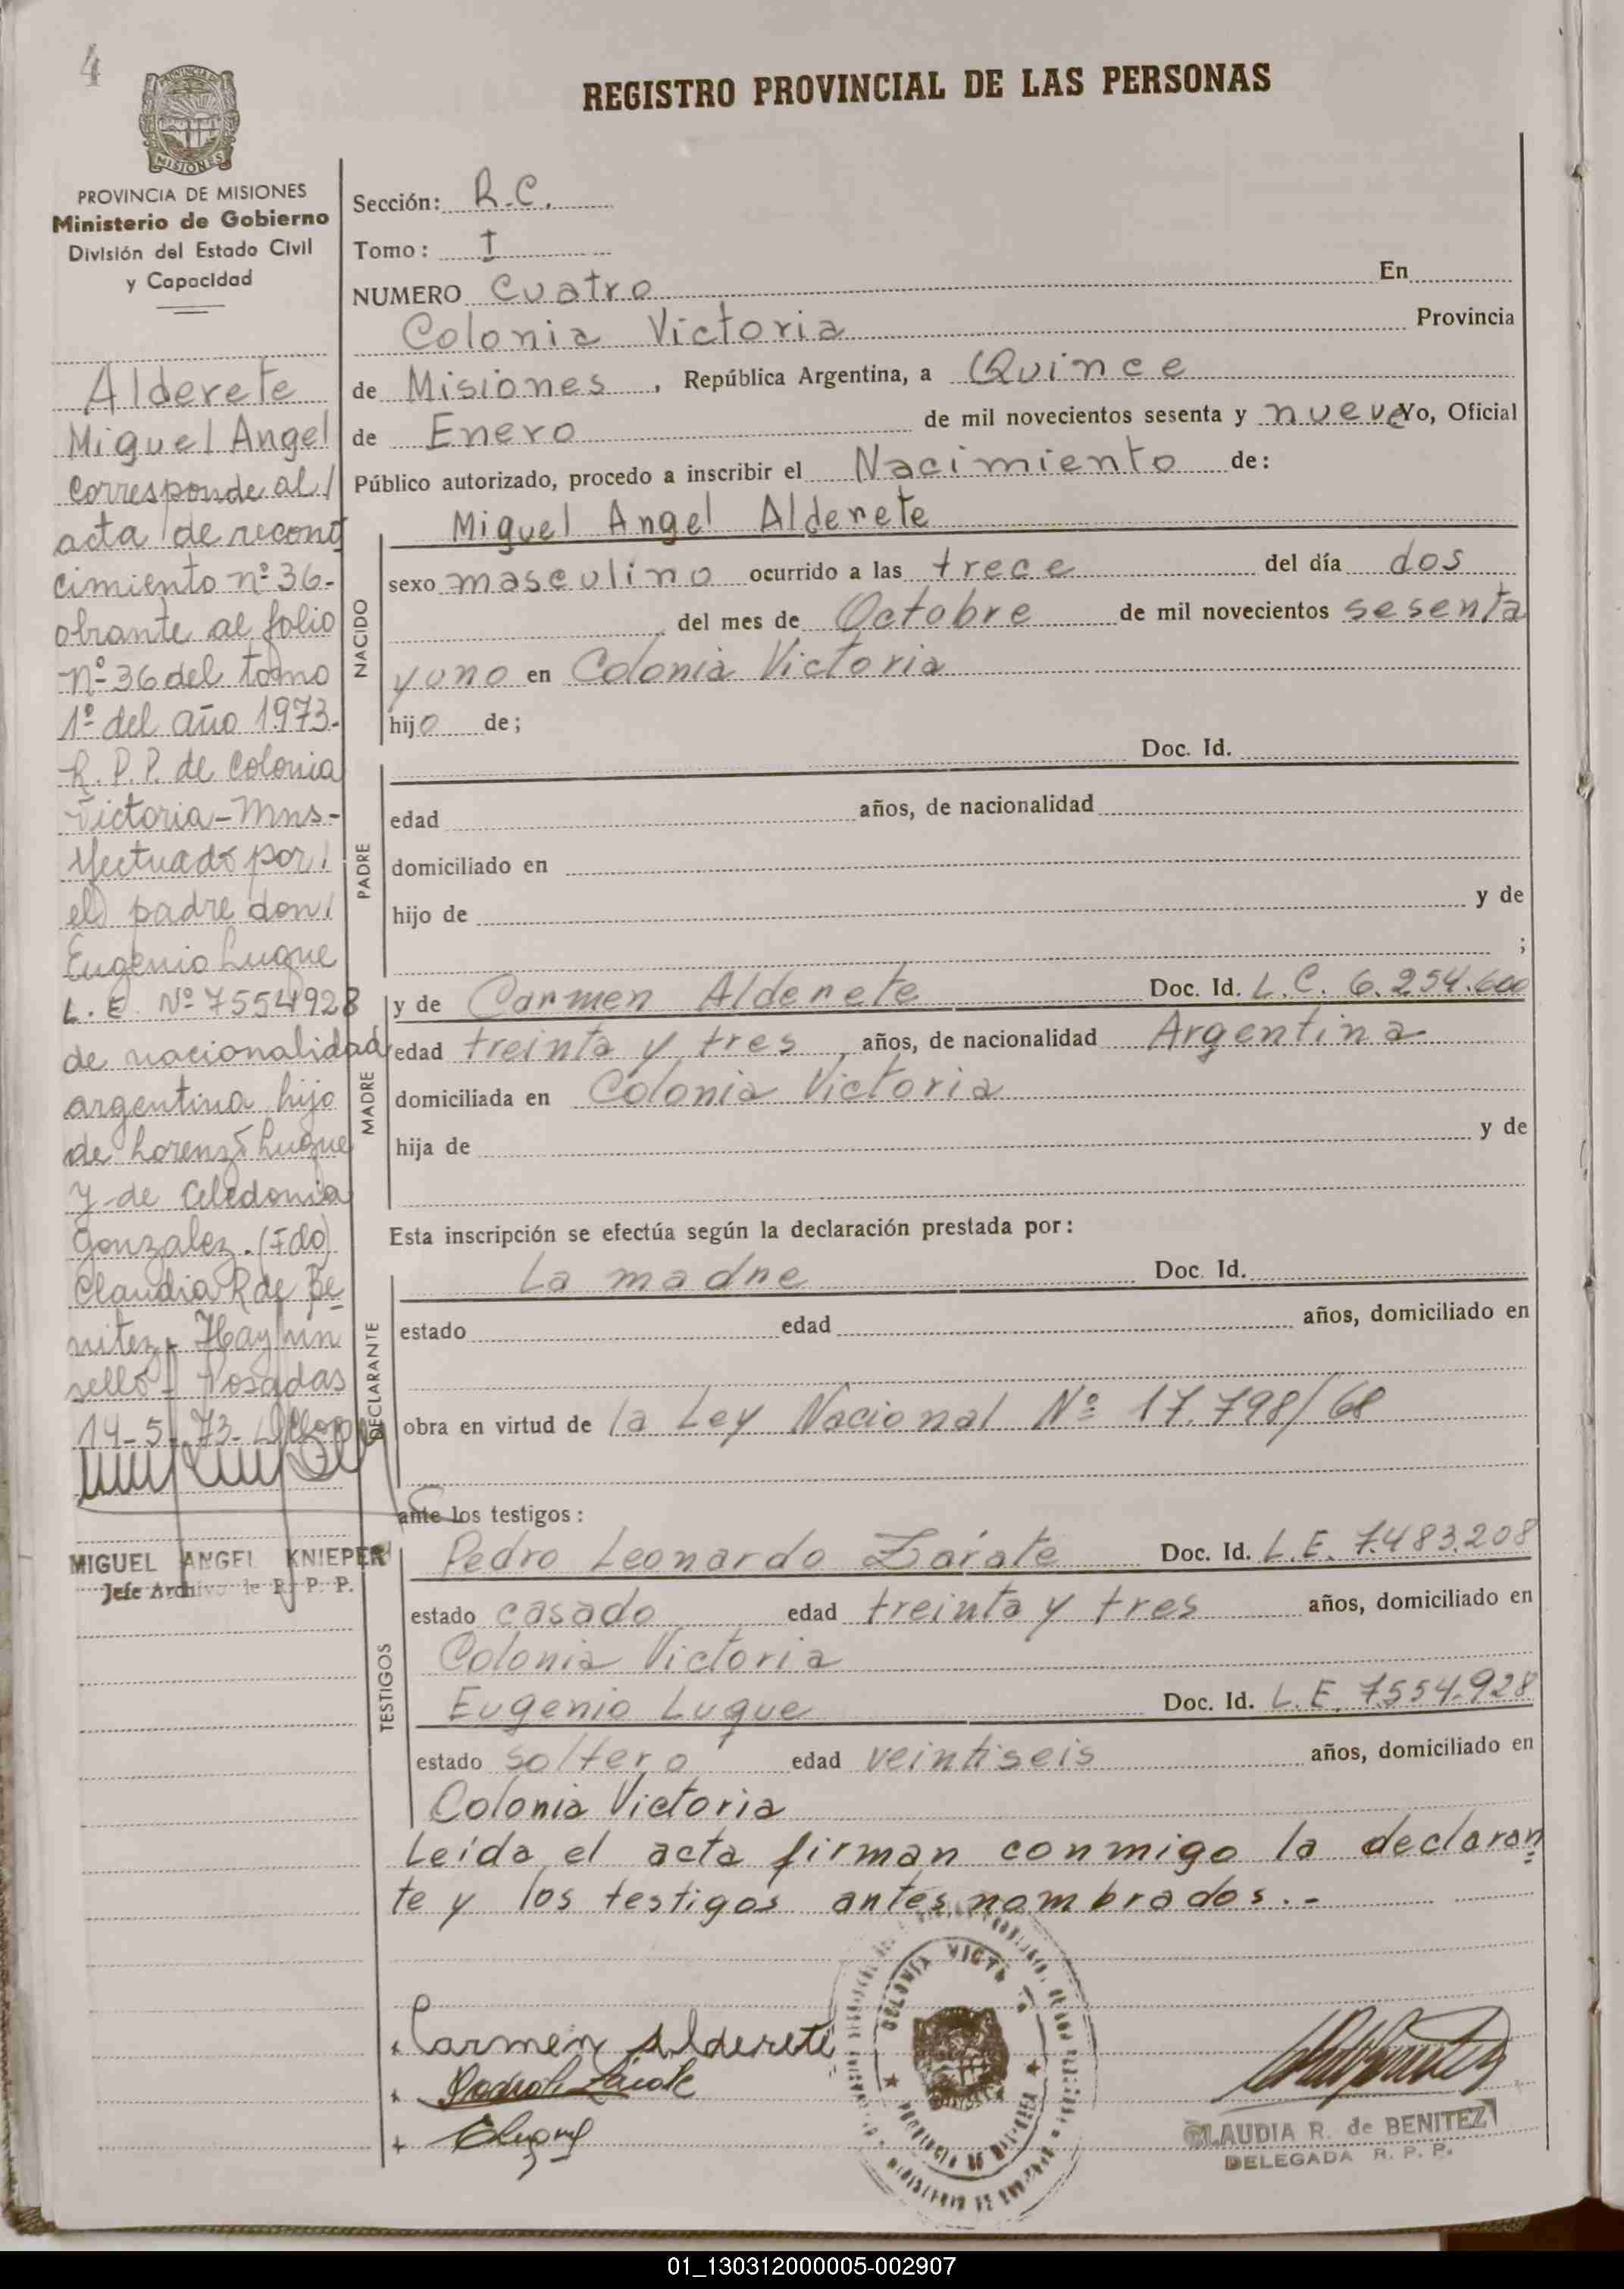 4
REGISTRO PROVINCIAL DE LAS PERSONAS
MISIONES
PROVINCIA DE MISIONES
Ministerio de Gobierno
División del Estado Civil
y Capacidad
Alderete
Miguel Angel
Corresponde al/
acta de recono
cimiento nº 36-
obrante al folio
Nº 36 del tomo
1º del año 1973.
R. P. P. de Colonia
Victoria - Mns-
efectuado por/
el padre don/
Eugenio Luque
L. E. Nº 7554928
de nacionalidad
argentina hijo
de Lorenzo Luque
y de Celedonia
Gonzalez. (Fdo)
Claudia R de Be
nitez. Hay un
sello - Posadas
14-5-73-
MIGUEL ANGEL KNIEPER
Jefe Archivo de R. P. P.
Sección: R.C.
Tomo: I
NUMERO Cuatro En
Colonia Victoria Provincia
de Misiones, República Argentina, a Quince
de Enero de mil novecientos sesenta y nueve Yo, Oficial
Público autorizado, procedo a inscribir el Nacimiento de:
NACIDO
Miguel Angel Alderete
sexo masculino ocurrido a las trece del día dos
del mes de Octobre de mil novecientos sesenta
y uno en Colonia Victoria
hijo de;
PADRE
Doc. Id.
edad años, de nacionalidad
domiciliado en
hijo de y de
;
MADRE
y de Carmen Alderete Doc. Id. L.C. 6.254.600
edad treinta y tres años, de nacionalidad Argentina
domiciliada en Colonia Victoria
hija de y de
Esta inscripción se efectúa según la declaración prestada por:
DECLARANTE
La madre Doc. Id.
estado edad años, domiciliado en
obra en virtud de la Ley Nacional Nº 17.798/68
ante los testigos:
TESTIGOS
Pedro Leonardo Zárate Doc. Id. L.E. 7.483.208
estado casado edad treinta y tres años, domiciliado en
Colonia Victoria
Eugenio Luque Doc. Id. L.E. 7.554.928
estado soltero edad veintiseis años, domiciliado en
Colonia Victoria
Leída el acta firman conmigo la declaran
te y los testigos antes nombrados.-
Carmen Alderete
CLAUDIA R. de BENITEZ
DELEGADA R. P. P.
01_130312000005-002907